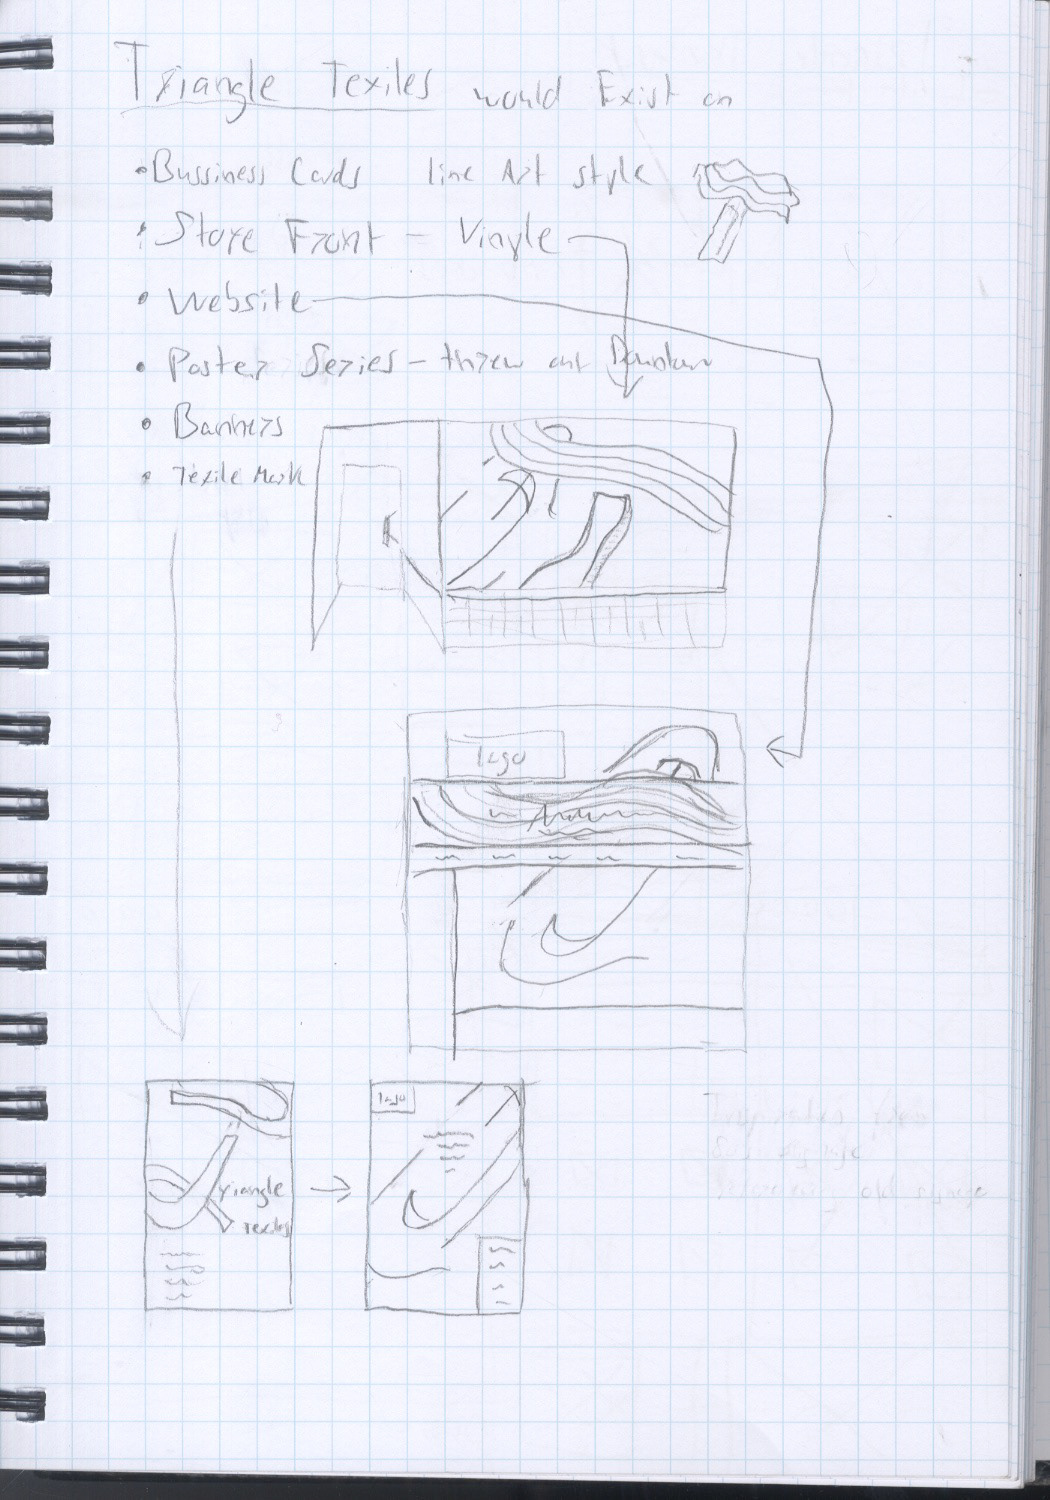 Triangle Texiles would Exist on
• Bussiness Cards line Art style
• Store Front - Vinyle
• Website
• Poster Series - threw out Downtown
• Banners
• Texile Mark
logo
logo
Triangle
Texiles